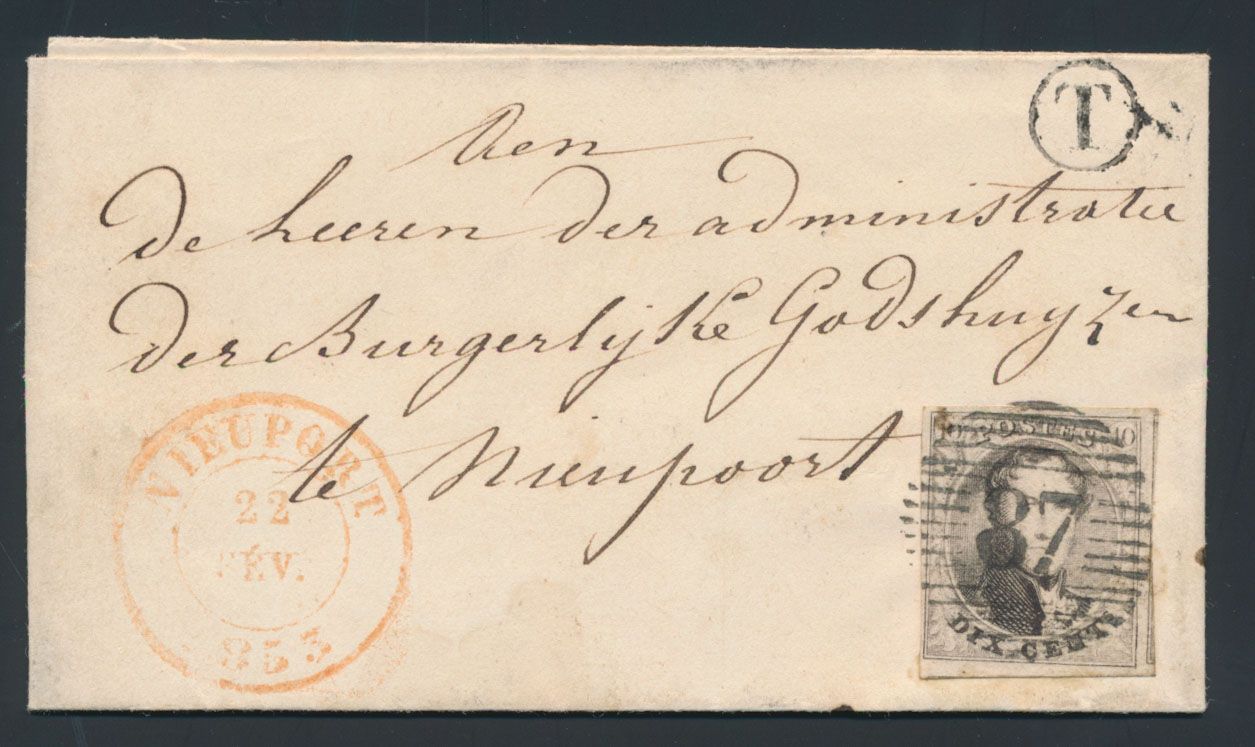 T
Aen
de heeren der administratie
der Burgerlijke Godshuyzen
te Nieupoort
NIEUPORT
22
FÉV.
1853
10 POSTES 10
87
DIX CENTS